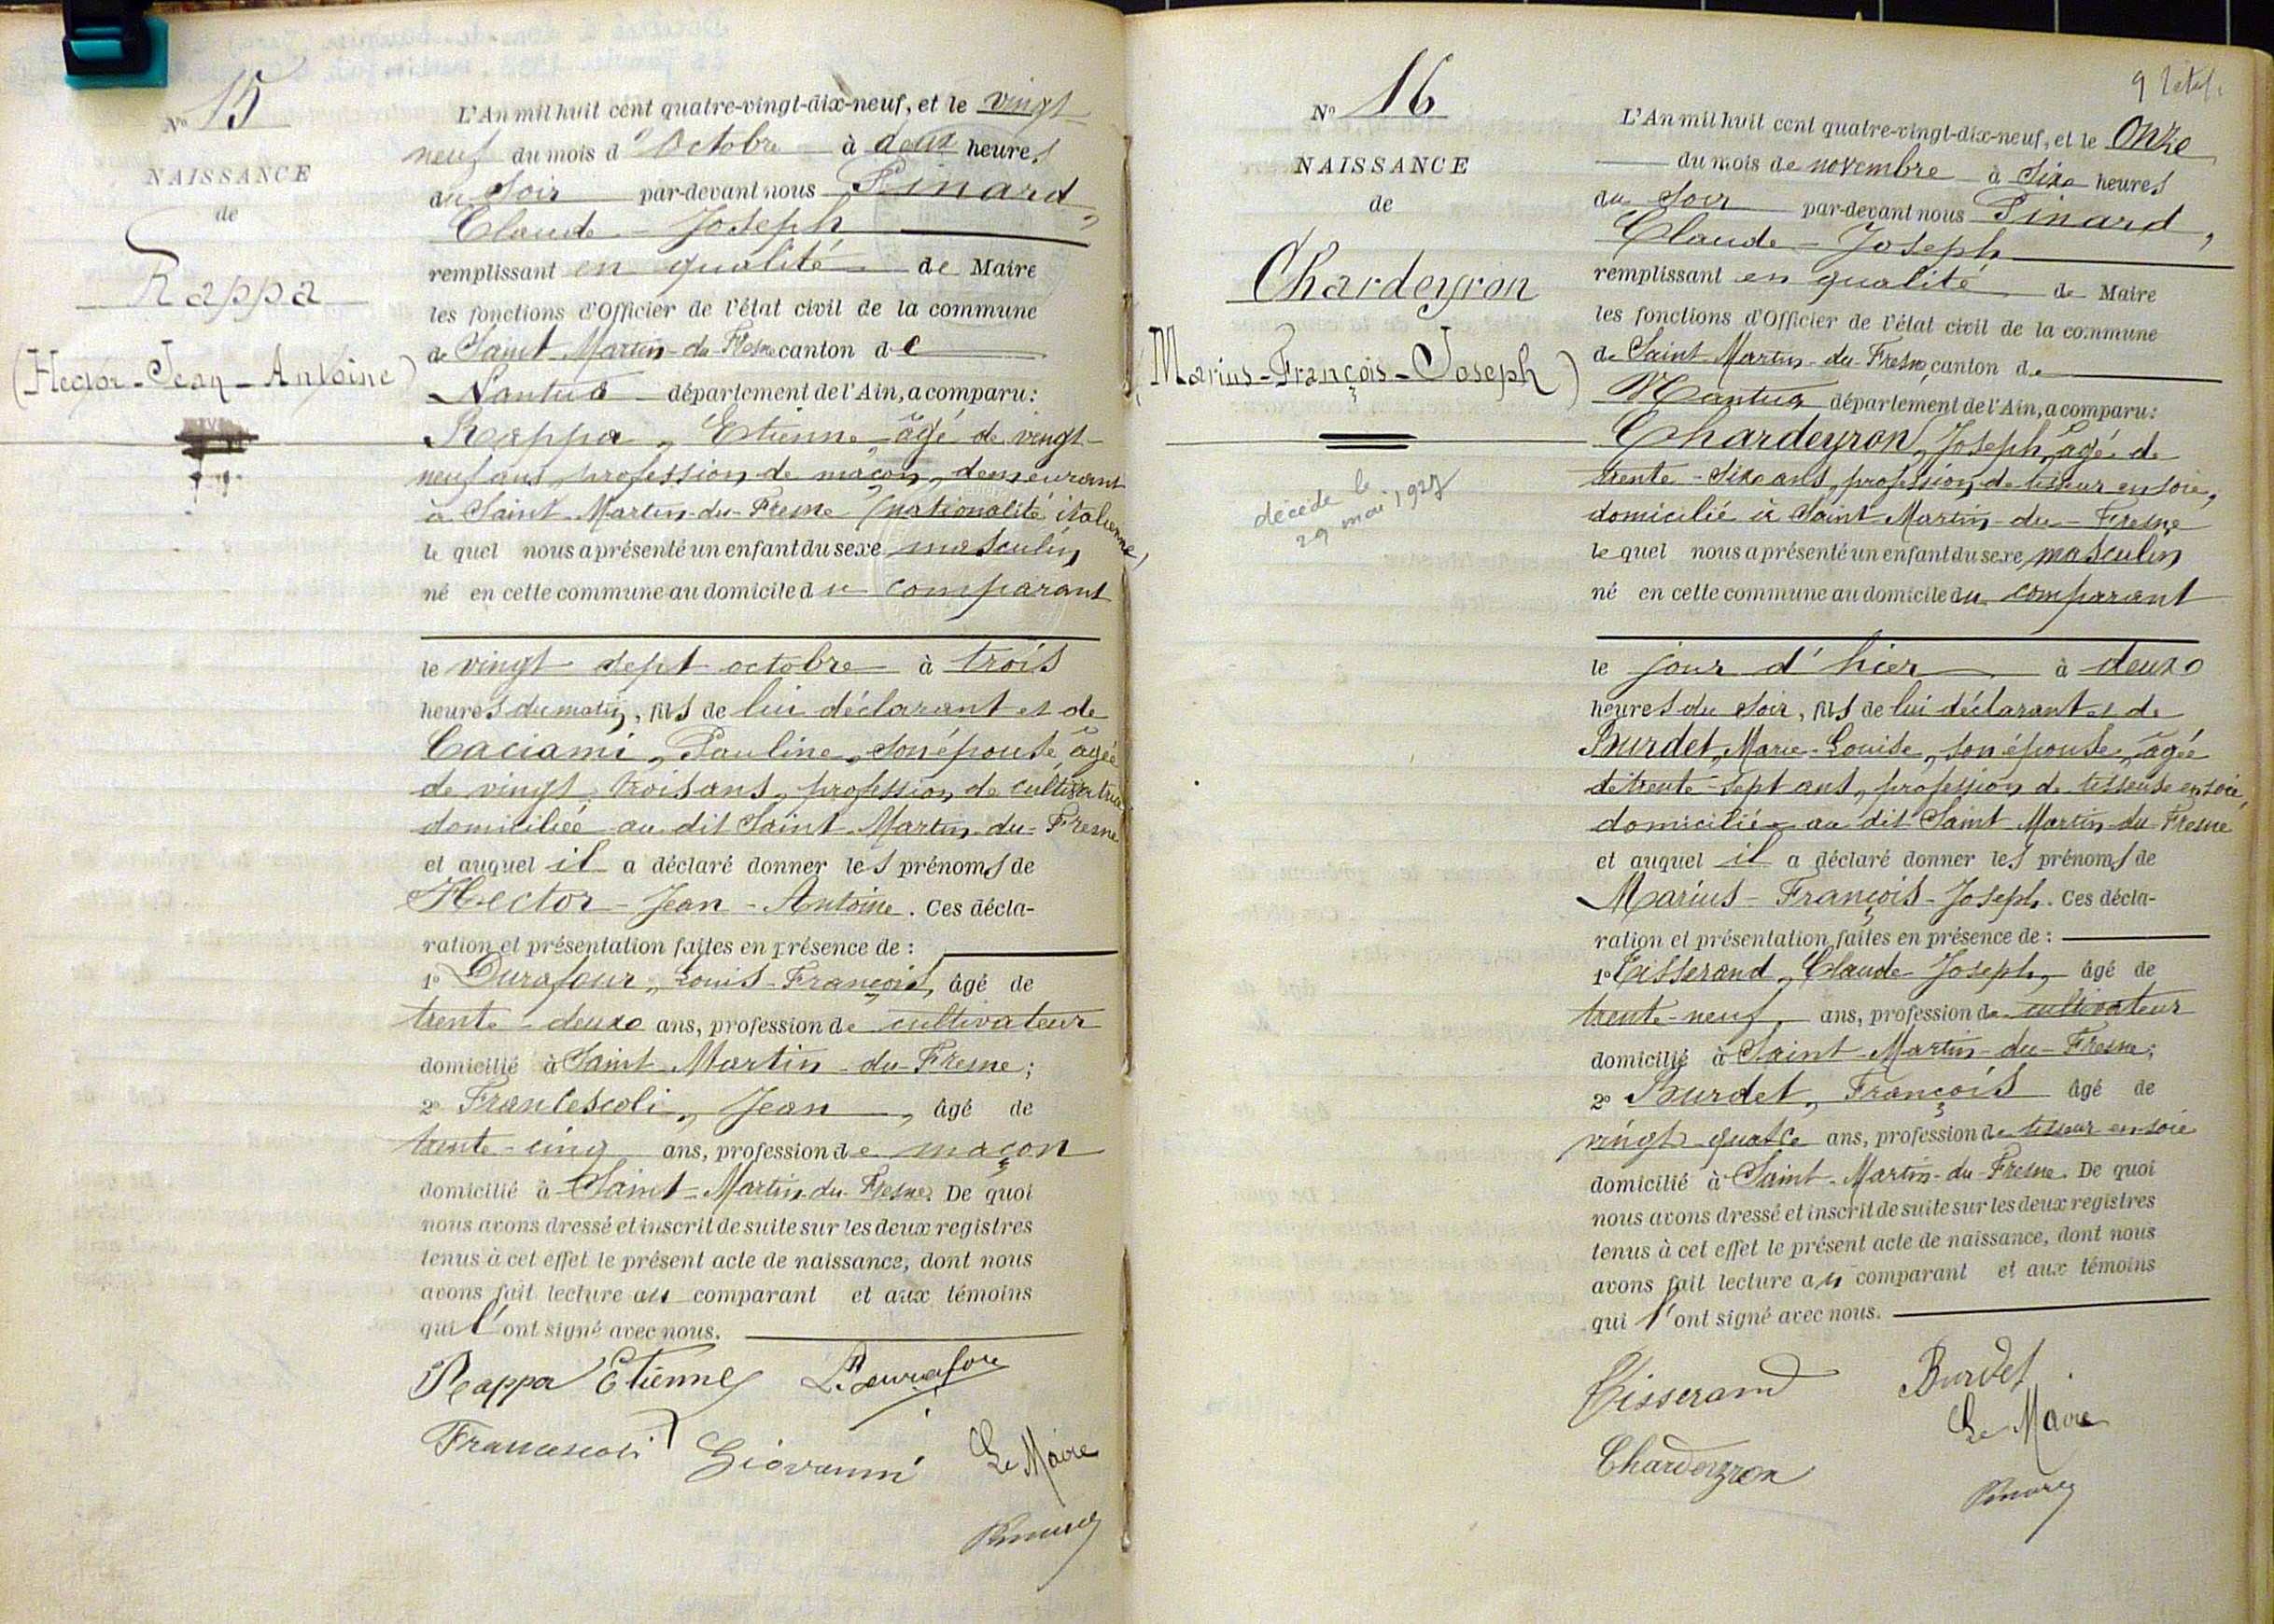 N° 15
NAISSANCE
de
Rappa
(Hector-Jean-Antoine)
L'An mil huit cent quatre-vingt-dix-neuf, et le vingt
neuf du mois d'Octobre à deux heures
du soir par-devant nous Pinard,
Claude-Joseph
remplissant en qualité de Maire
les fonctions d'Officier de l'état civil de la commune
de Saint-Martin-du-Fresne canton de
Nantua département de l'Ain, a comparu:
Rappa, Etienne âgé de vingt-
neuf ans, profession de maçon, demeurant
à Saint-Martin-du-Fresne (nationalité italienne,
le quel nous a présenté un enfant du sexe masculin
né en cette commune au domicile du comparant
le vingt sept octobre à trois
heures du matin, fils de lui déclarant et de
Caciami, Pauline, son épouse, âgée
de vingt-trois ans, profession de cultivatrice
domiciliée au dit Saint-Martin-du-Fresne
et auquel il a déclaré donner les prénoms de
Hector-Jean-Antoine. Ces décla-
ration et présentation faites en présence de :
1° Durafour, Louis-François, âgé de
trente-deux ans, profession de cultivateur
domicilié à Saint-Martin-du-Fresne;
2° Francescoli, Jean, âgé de
trente-cinq ans, profession de maçon
domicilié à Saint-Martin-du-Fresne. De quoi
nous avons dressé et inscrit de suite sur les deux registres
tenus à cet effet le présent acte de naissance, dont nous
avons fait lecture au comparant et aux témoins
qui l'ont signé avec nous.
Rappa Etienne L. Durafour
Francescoli Giovanni Le Maire
Pinard
9 
N° 16
NAISSANCE
de
Chardeyron
(Marius-François-Joseph)
décédé le
29 mai 1927
L'An mil huit cent quatre-vingt-dix-neuf, et le Onze
du mois de novembre à Six heures
du soir par-devant nous Pinard,
Claude-Joseph
remplissant en qualité de Maire
les fonctions d'Officier de l'état civil de la commune
de Saint-Martin-du-Fresne, canton de
Nantua département de l'Ain, a comparu:
Chardeyron, Joseph, âgé de
trente-six ans, profession de tisseur en soie,
domicilié à Saint-Martin-du-Fresne
le quel nous a présenté un enfant du sexe masculin
né en cette commune au domicile du comparant
le jour d'hier à deux
heures du soir, fils de lui déclarant et de
Burdet, Marie-Louise, son épouse, âgée
de trente-sept ans, profession de tisseuse en soie,
domiciliée au dit Saint-Martin-du-Fresne
et auquel il a déclaré donner les prénoms de
Marius-François-Joseph. Ces décla-
ration et présentation faites en présence de :
1° Tisserand, Claude Joseph, âgé de
trente-neuf ans, profession de cultivateur
domicilié à Saint-Martin-du-Fresne;
2° Burdet, François âgé de
vingt-quatre ans, profession de tisseur en soie
domicilié à Saint-Martin-du-Fresne. De quoi
nous avons dressé et inscrit de suite sur les deux registres
tenus à cet effet le présent acte de naissance, dont nous
avons fait lecture au comparant et aux témoins
qui l'ont signé avec nous.
Tisserand Burdet
Le Maire
Chardeyron
Pinard